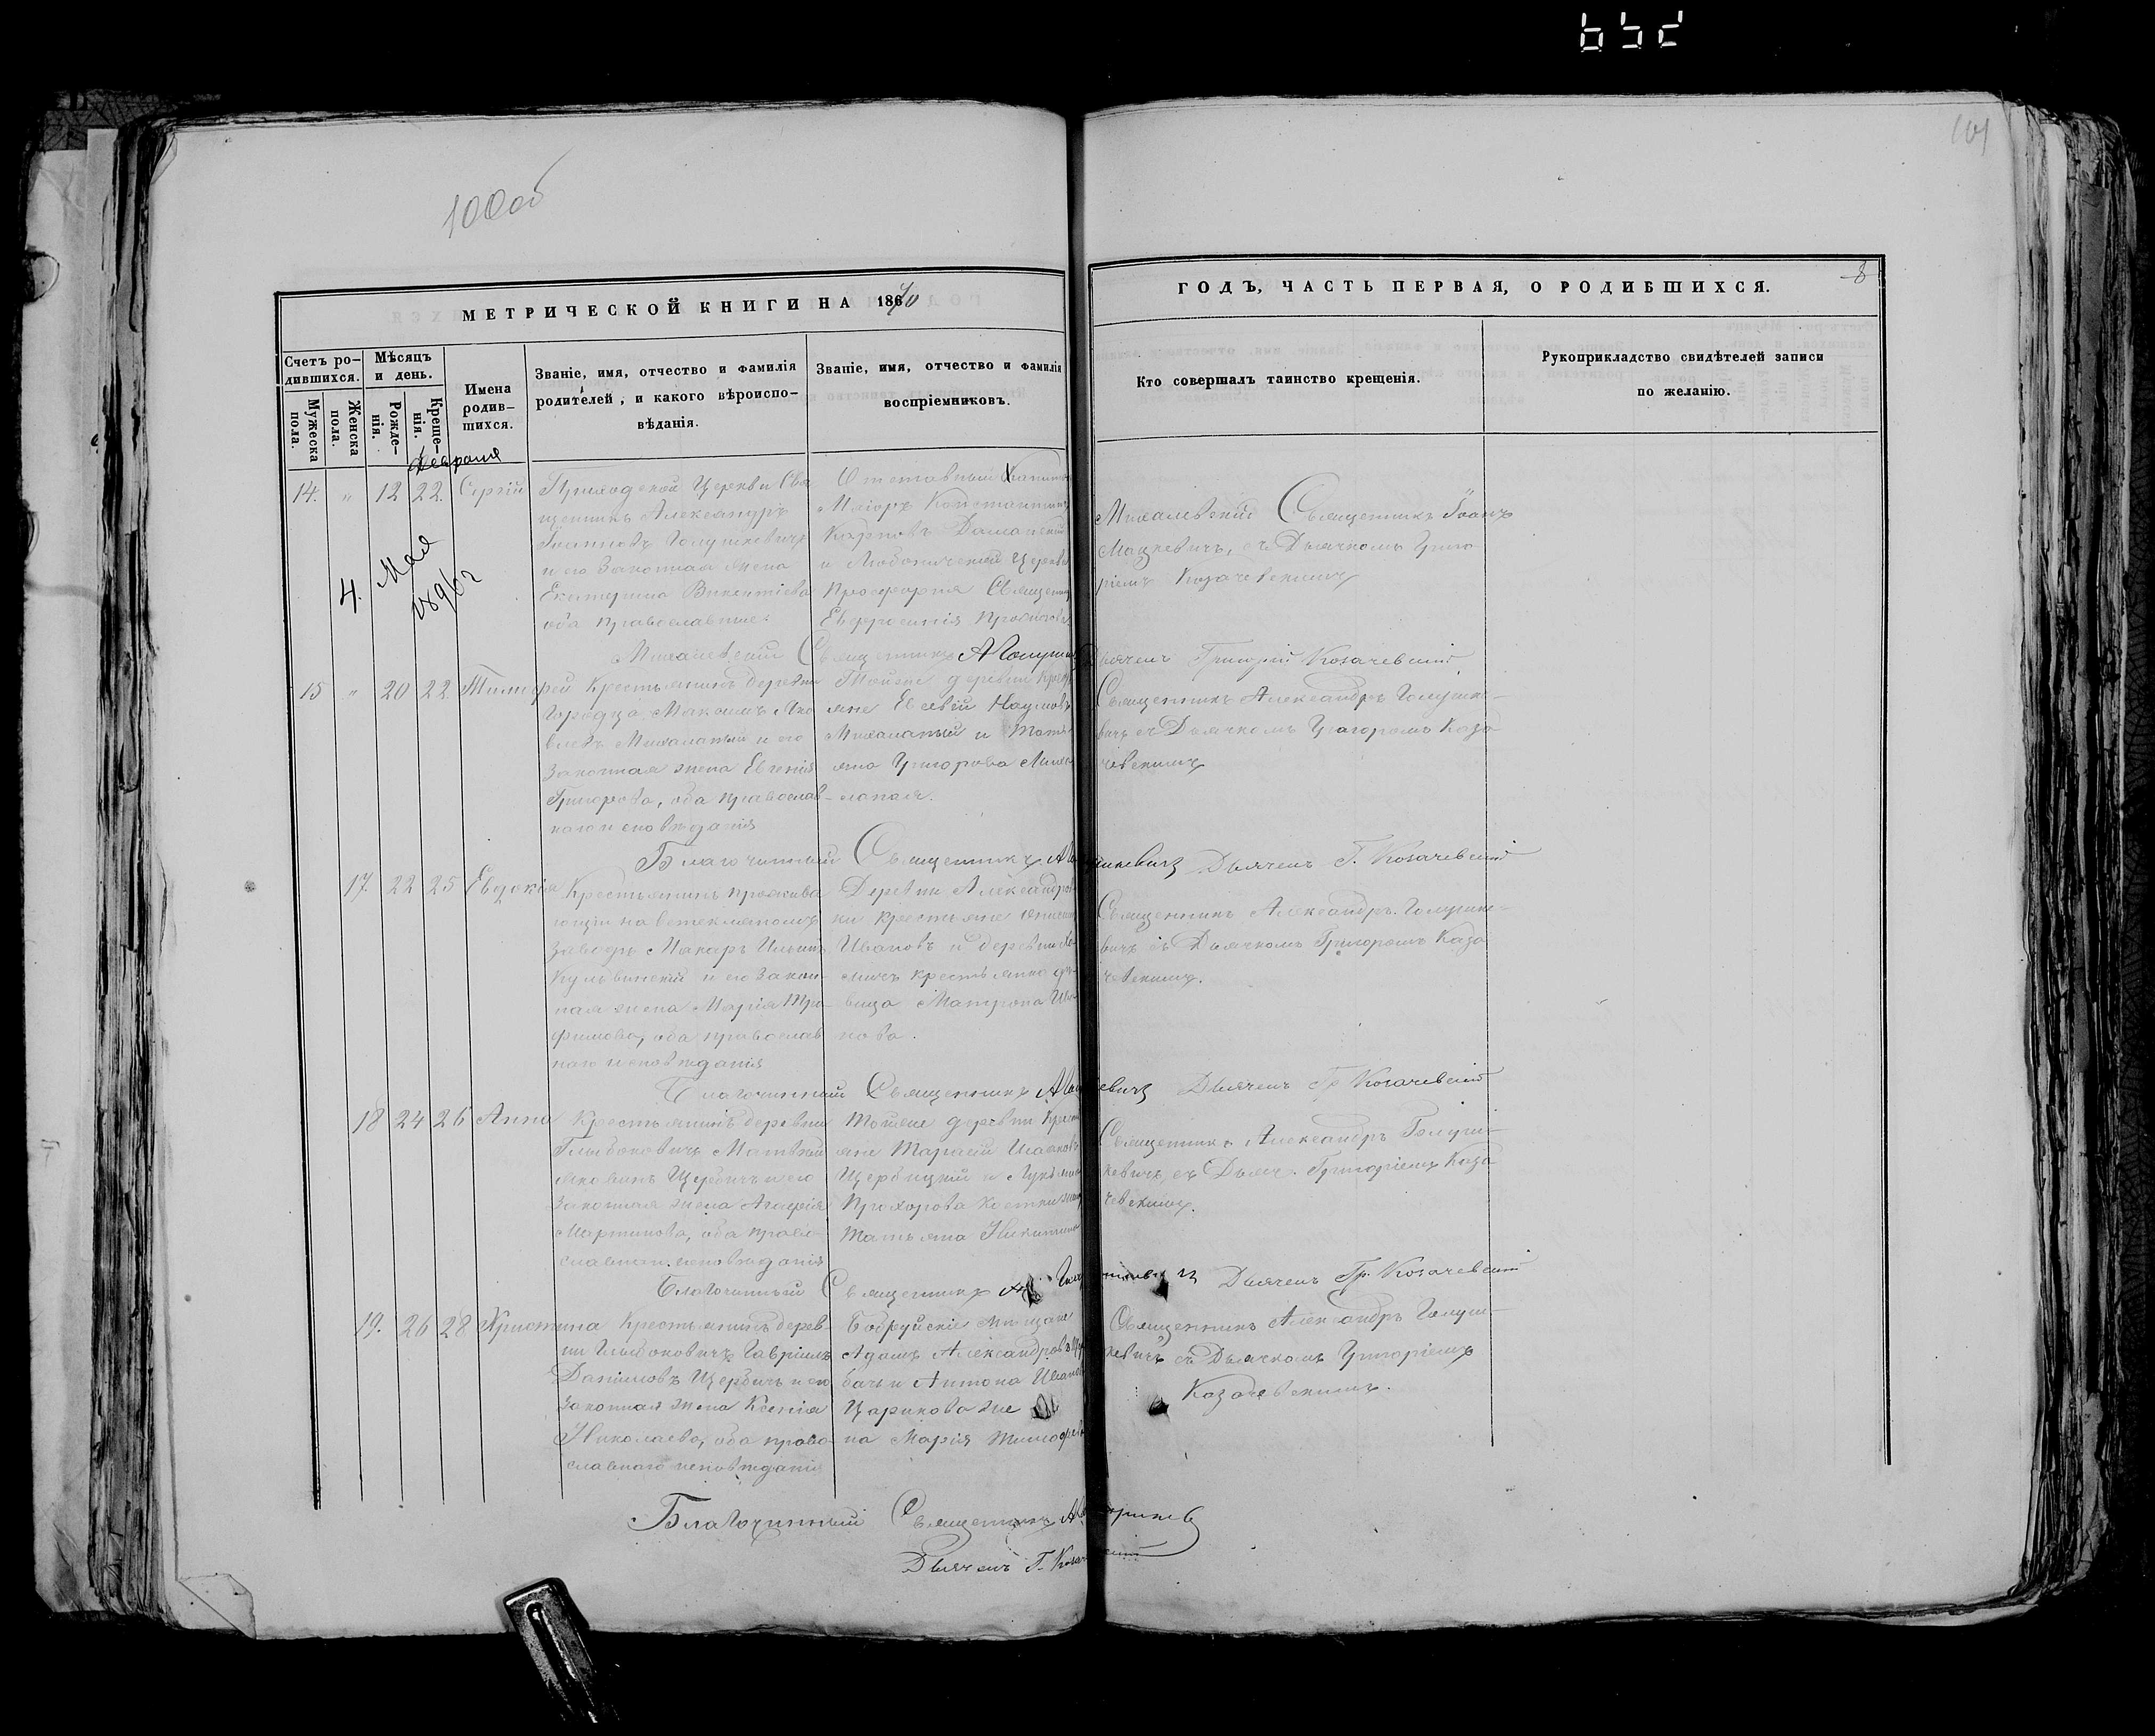 652
101
100об
МЕТРИЧЕСКОЙ КНИГИ НА 1870
ГОДЪ, ЧАСТЬ ПЕРВАЯ, О РОДИВШИХСЯ.
8
Счетъ ро-
дившихся.
Мужеска
пола.
Женска
пола.
Мѣсяцъ
и день.
Рожде-
нія.
Креще-
нія.
Имена
родив-
шихся.
Званіе, имя, отчество и фамилія
родителей, и какого вѣроиспо-
вѣданія.
Званіе, имя, отчество и фамилія
воспріемниковъ.
Кто совершалъ таинство крещенія.
Рукоприкладство свидѣтелей записи
по желанію.
Февраля
14. " 12 22. Сергій
4. Мая
1896 г
Приходской Церкви Свя
щенникъ Александръ
Іоанновъ Голушкевичъ
и его Законная жена
Екатерина Викентіева
оба православные
Отставный
Маіоръ Константинъ
Карповъ
и Любоничской Церкви
Священ
Евфросинія
Михалевскій Священникъ Іоаннъ
Мацкевичъ, съ Дьячкомъ Григо
ріемъ Козачевскимъ
Михалевскій Священникъ А Голушк
Дьячекъ Григорій Козачевскій
15 " 20 22 Тимофей
Крестьянинъ деревни
Городца Максимъ Яко
влевъ и его
Законная жена Евгенія
Григорова, оба православ-
наго исповѣданія
Тойже деревни Кресть
яне Евсевій Наумовъ
и Тать
яна Григорова
Священникъ Александръ Голушке-
вичъ съ Дьячкомъ Григоромъ Каза
чевскимъ
Благочинный Священникъ А Голушкевичъ Дьячекъ Г. Козачевскій
17. 22 25 Евдокія
Крестьянинъ прожива
ющій на стеклянномъ
Заводѣ Макаръ Ильинъ
и его Закон-
ная жена Марія Тро-
фимова, оба православ
наго исповѣданія
Деревни Александров
ки крестьяне
Ивановъ и деревни
крестьянка дѣ-
вица Матрона Ива-
нова.
Священникъ Александръ Голушке-
вичъ съ Дьячкомъ Григоромъ Каза
чевскимъ.
Благочинный Священникъ А Голушкевичъ Дьячекъ Гр Козачевскій
18 24 26 Анна
Крестьянинъ деревни
Глыбоковичъ Матвѣй
Яковинъ Щербичъ и его
Законная жена Агафія
Мартинова, оба право-
славнаго исповѣданія
Тойже деревни Кресть
яне Тарасій Исааковъ
Щербицкій и Лукьяна
Прохорова
Татьяна Никитина
Священникъ Александръ Голуш-
кевичъ, съ Дьяч. Григоріемъ Каза
чевскимъ.
Благочинный Священникъ Дьячекъ Гр. Козачевскій
19. 26 28 Христина
Крестьянинъ дерев-
ни Глыбоковичъ Гавріилъ
Даніиловъ Щербичъ и его
Законная жена Ксенія
Николаева, оба право-
славнаго исповѣданія
Бобруйскіе Мѣщане
Адамъ Александровъ
и Антона Иванов
Царикова же
на Марія Тимофѣева
Священникъ Александръ Голуш-
кевичъ съ Дьячкомъ Григоріемъ
Казачевскимъ.
Благочинный Священникъ А Голушкев
Дьячекъ Г. Козачевскій